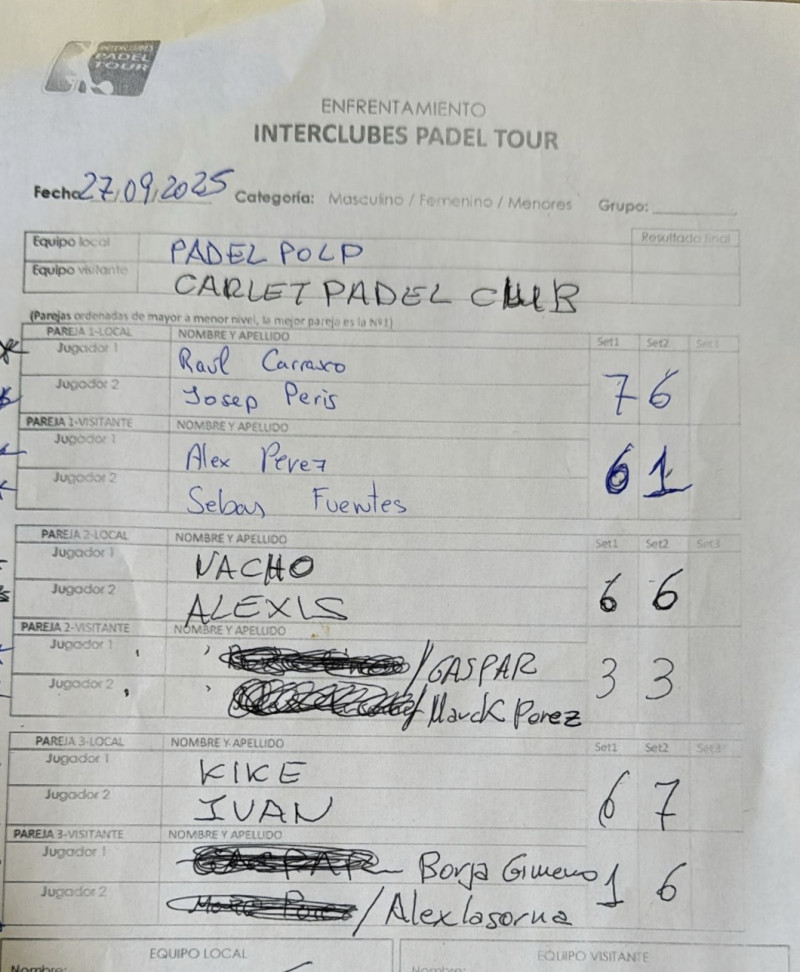 INTERCLUBES
PADEL
TOUR
ENFRENTAMIENTO
INTERCLUBES PADEL TOUR
Fecha 27/09/2025 Categoría: Masculino / Femenino / Menores Grupo:
Equipo local PADEL POLP Resultado final
Equipo visitante CARLET PADEL CLUB
(Parejas ordenadas de mayor a menor nivel, la mejor pareja es la Nº1)
PAREJA 1-LOCAL NOMBRE Y APELLIDO Set1 Set2 Set3
Jugador 1 Raúl Carrasco
Jugador 2 Josep Peris 7 6
PAREJA 1-VISITANTE NOMBRE Y APELLIDO
Jugador 1 Alex Perez
Jugador 2 Sebas Fuentes 6 1
PAREJA 2-LOCAL NOMBRE Y APELLIDO Set1 Set2 Set3
Jugador 1 NACHO
Jugador 2 ALEXIS 6 6
PAREJA 2-VISITANTE NOMBRE Y APELLIDO
Jugador 1 /GASPAR
Jugador 2 /Marck Perez 3 3
PAREJA 3-LOCAL NOMBRE Y APELLIDO Set1 Set2 Set3
Jugador 1 KIKE
Jugador 2 IVAN 6 7
PAREJA 3-VISITANTE NOMBRE Y APELLIDO
Jugador 1 GASPAR Borja Gimeno
Jugador 2 /Alex lasorna 1 6
EQUIPO LOCAL EQUIPO VISITANTE
Nombre: Nombre: